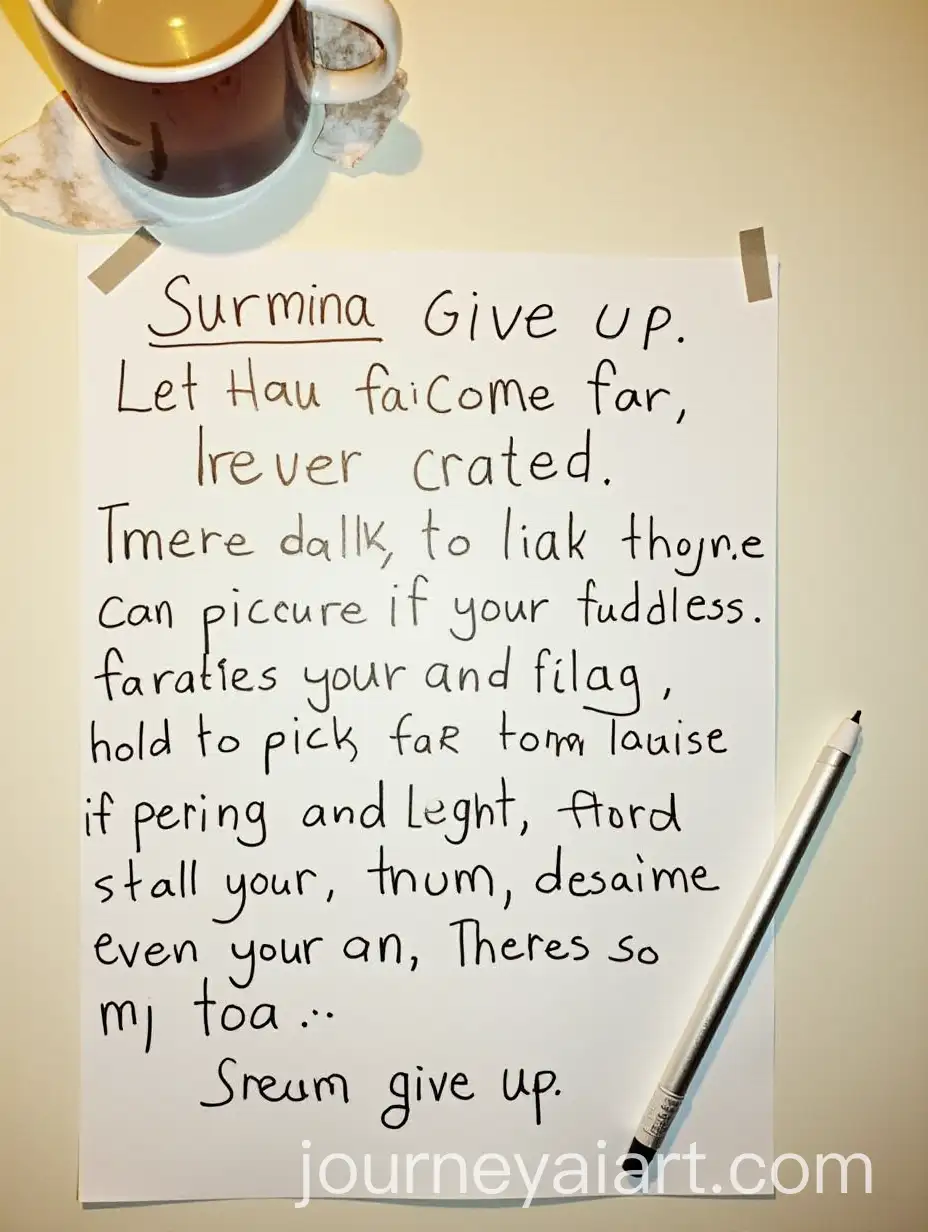 Surmina Give up.
Let Hau faicome far,
Irever crated.
Tmere dallk, to liak thojn.e
can piccure if your fuddless.
faraties your and filag,
hold to pick, faR tom Tauise
if pering and Leght, ftord
stall your, tnum, desaime
even your an, Theres so
mj toa ...
Sreum give up.
journeyaiart.com